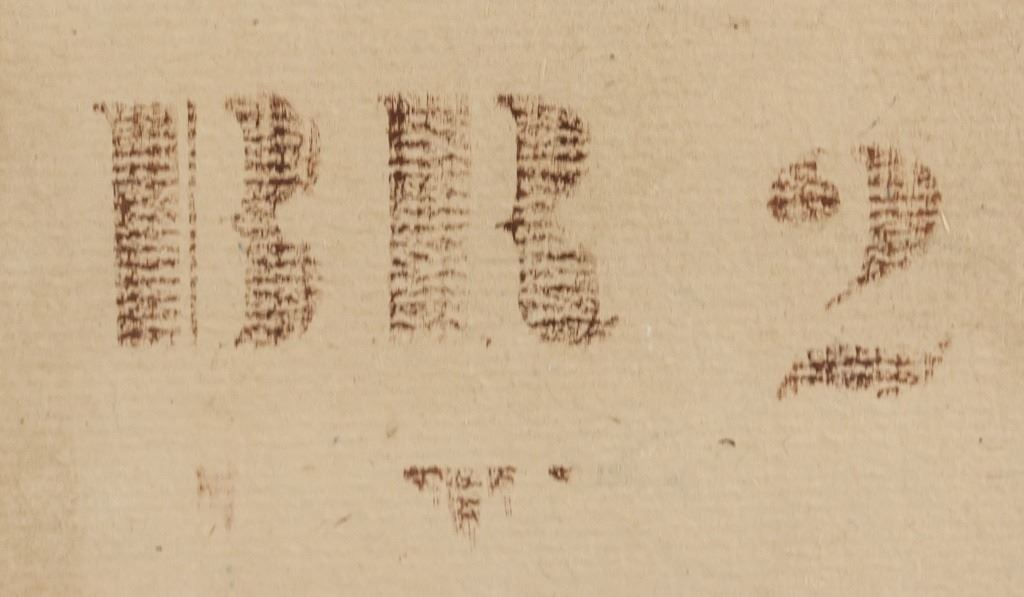 BR 2